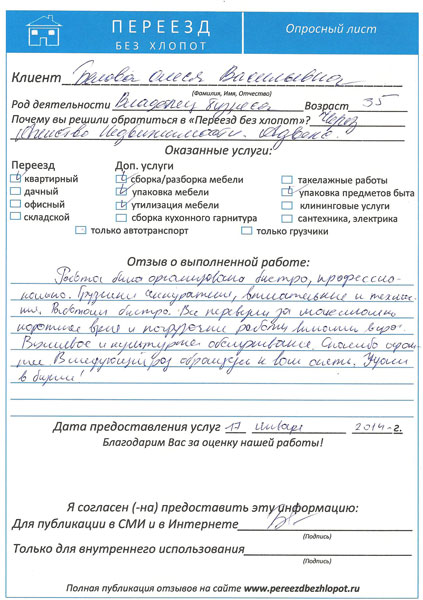 ПЕРЕЕЗД
БЕЗ ХЛОПОТ
Опросный лист
Клиент Белова Олеся Васильевна
(Фамилия, Имя, Отчество)
Род деятельности Владелец бизнеса Возраст 35
Почему вы решили обратиться в «Переезд без хлопот»? Через
Агентство Недвижимости.
Оказанные услуги:
Переезд Доп. услуги
квартирный сборка/разборка мебели такелажные работы
дачный упаковка мебели упаковка предметов быта
офисный утилизация мебели клининговые услуги
складской сборка кухонного гарнитура сантехника, электрика
только автотранспорт только грузчики
Отзыв о выполненной работе:
Работа была организована быстро, профессио-
нально. Грузчики аккуратные, внимательные и
Работали быстро. Все перевезли за максимально
короткое время и погрузочные работы
Вежливое и культурное обслуживание. Спасибо
В следующий раз обращусь к вам опять. Удачи
в бизнесе!
Дата предоставления услуг 17 января 2014-г.
Благодарим Вас за оценку нашей работы!
Я согласен (-на) предоставить эту информацию:
Для публикации в СМИ и в Интернете
(Подпись)
Только для внутреннего использования
(Подпись)
Полная публикация отзывов на сайте www.pereezdbezhlopot.ru